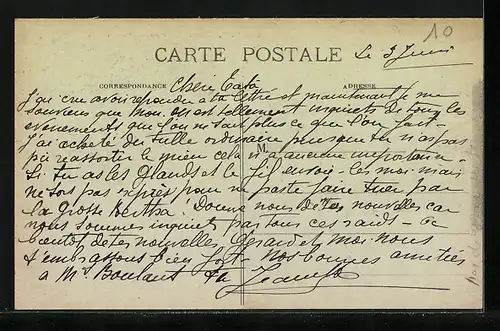 10
CARTE POSTALE Le 3 Juin
CORRESPONDANCE Chère ADRESSE
J'ai cru avoir répondu à ta lettre et maintenant je me
souviens que non. On est tellement inquiets de tous les
évènements que l'on ne sait plus ce que l'on fait.
J'ai acheté du tulle ordinaire puisque tu n'as pas
pu reassortir le mien cela n'a aucune importance
M.
Si tu as les glands et le fil envoie les moi mais
ne sors pas exprès pour ne pas te faire tuer par
la grosse Bertha! Donne nous de tes nouvelles car
nous sommes inquiets par tous ces raids - à
bientôt de tes nouvelles, et moi nous
t'embrassons bien fort - nos bonnes amitiés
à Mr Boulant ta Jeanne